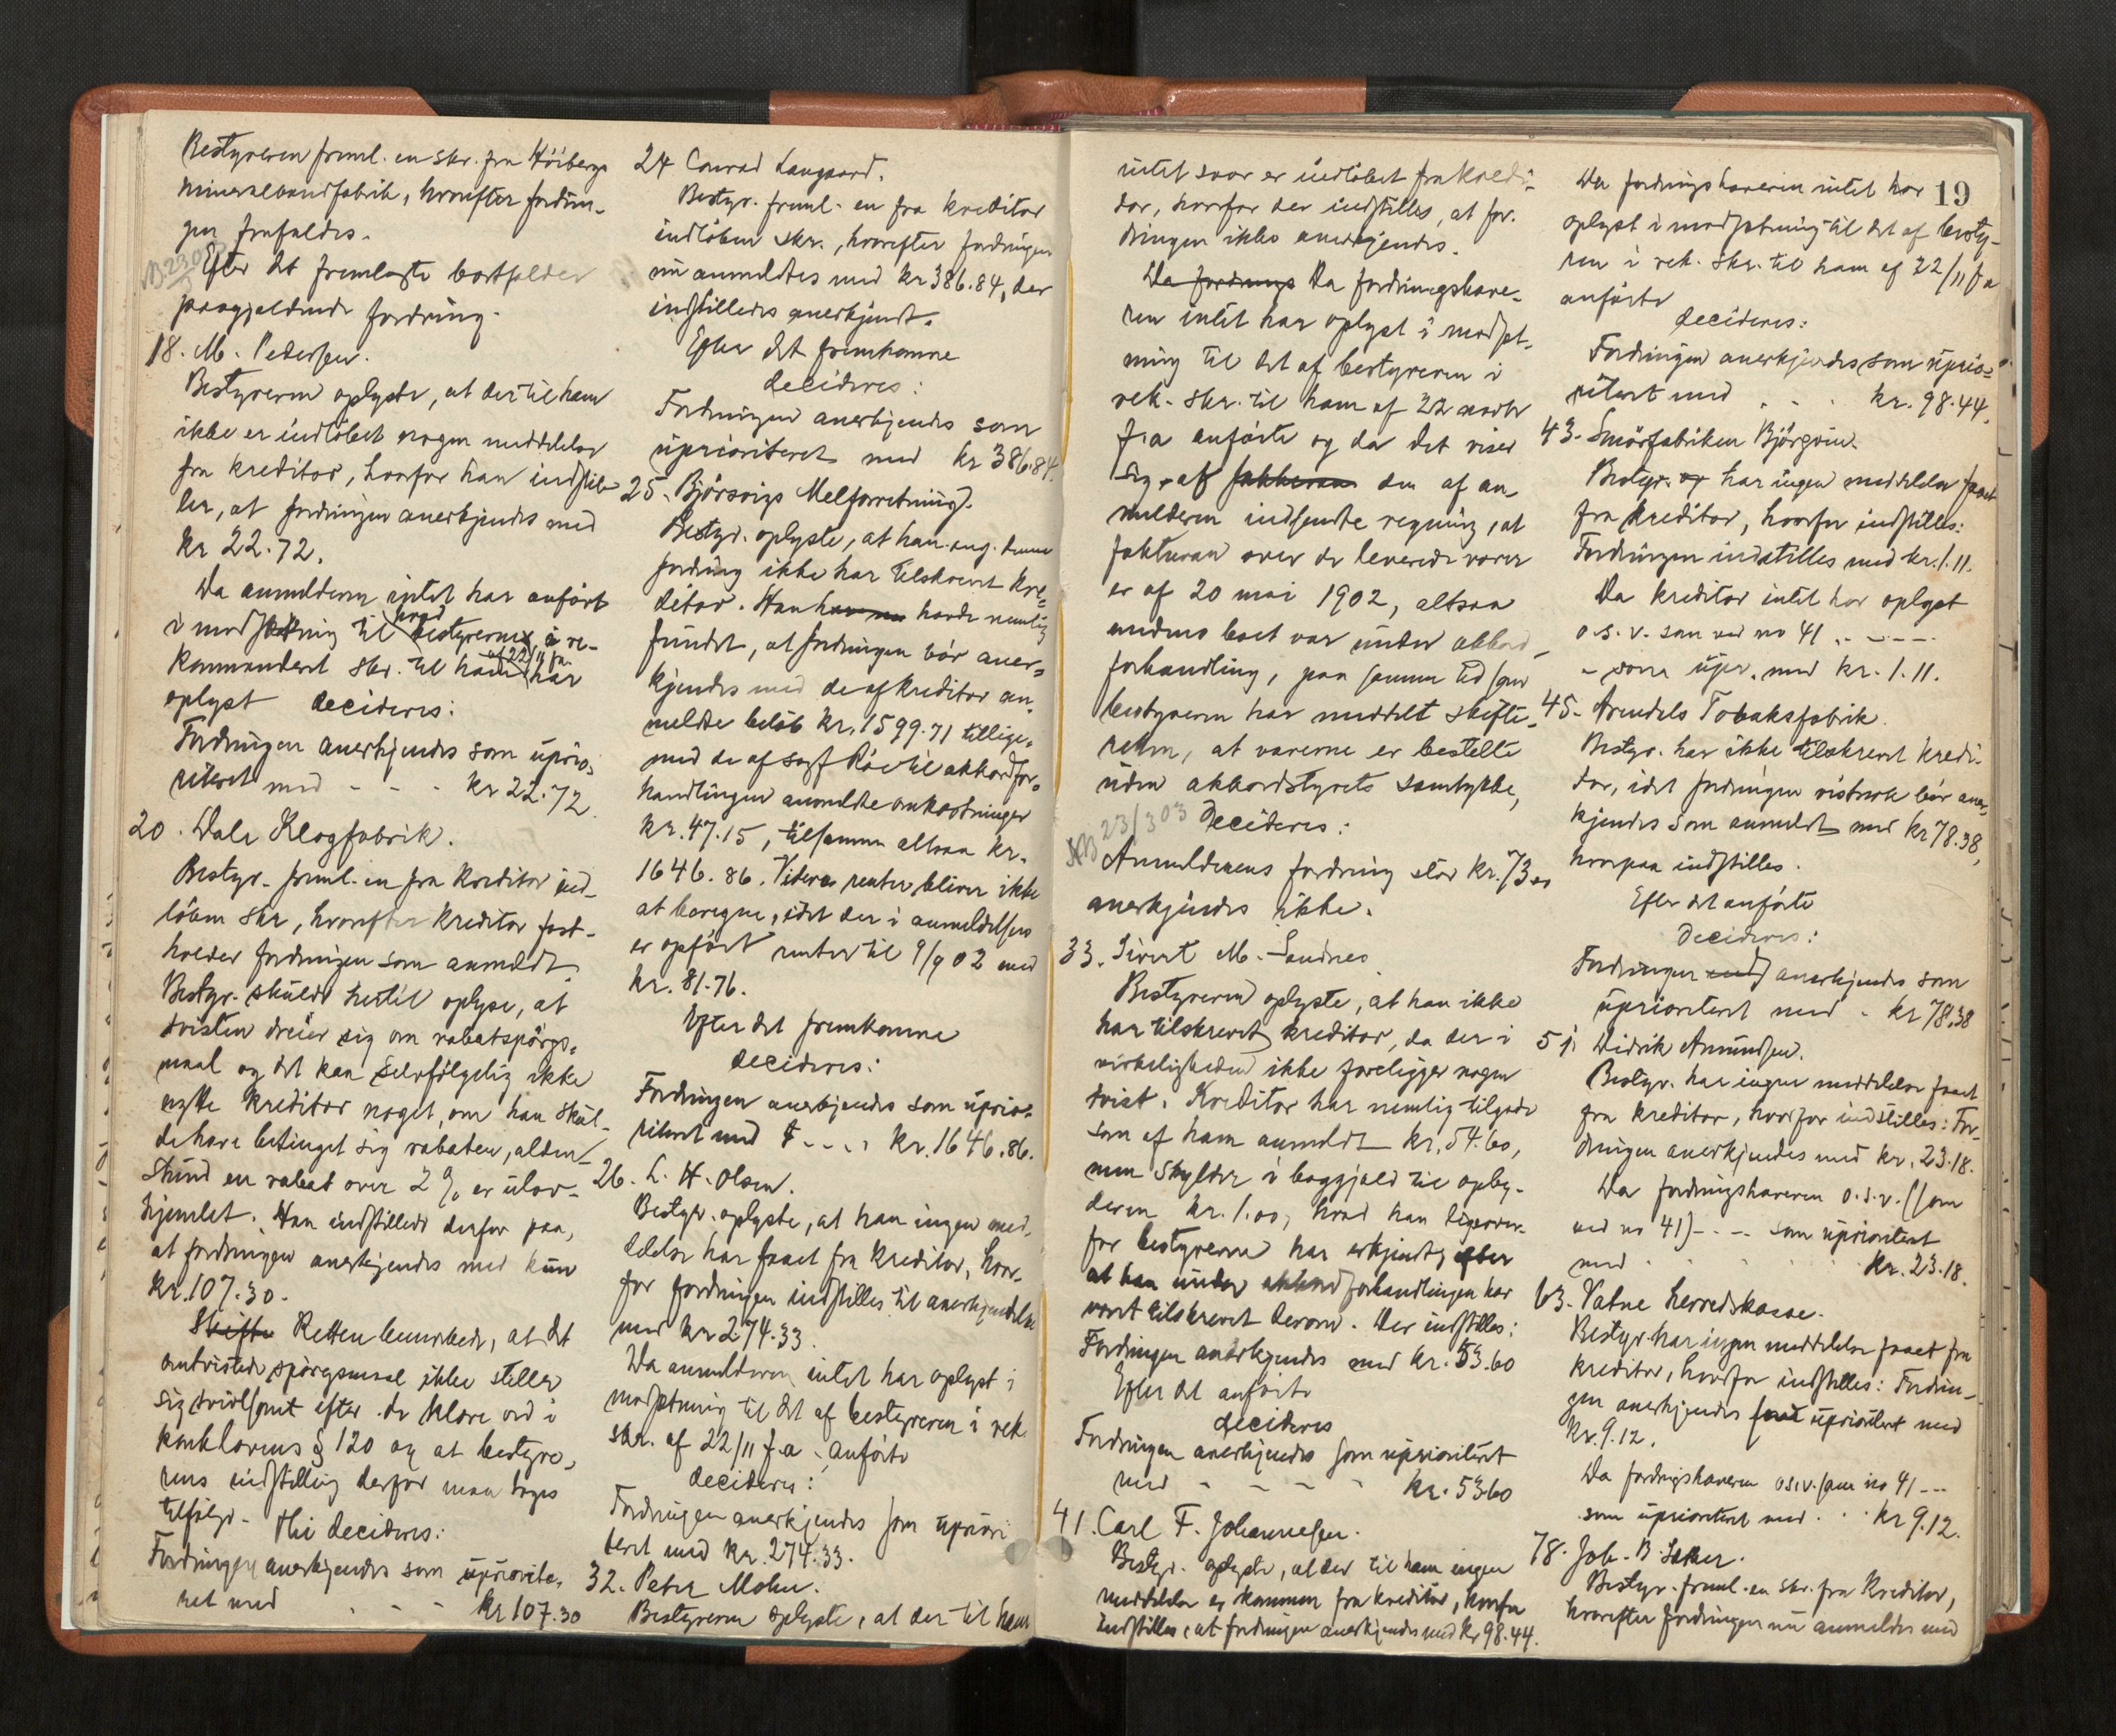 Bestyreren freml. en skr. fra Höibergs
mineralvandfabrik, hvorefter fordrin-
gen frafaldes.
Efter det fremlagte bortfalder
paagjældende fordring.
18. M. Pedersen.
Bestyreren oplyste, at der til ham
ikke er indløbet nogen meddelelse
fra kreditor, hvorfor han indstil-
ler, at fordringen anerkjendes med
kr 22.72.
Da anmelderen intet har anført
i modsætning til hvad bestyreren i re-
kommanderet skr. til ham af 22/11 f.a. har
oplyst decideres:
Fordringen anerkjendes som uprio-
riteret med - - - kr 22.72.
20. Dale Klogfabrik.
Bestyr. freml. en fra kreditor ind-
løben skr, hvorefter kreditor fast-
holder fordringen som anmeldt.
Bestyr. skulde hertil oplyse, at
tvisten dreier sig om rabatspørgs-
maal og det kan selvfølgelig ikke
nytte kreditor noget, om han skul-
de have betinget sig rabaten, alden-
stund en rabat over 2% er ulov-
hjemlet. Han indstillede derfor paa,
at fordringen anerkjendes med kun
kr. 107.30.
Skifte Retten bemærkede, at det
omtvistede spørgsmaal ikke stiller
sig tvivlsomt efter de klare ord i
konklovens § 120 og at bestyre-
rens indstilling derfor maa tages
tilfølge. Thi decideres:
Fordringen anerkjendes som upriorite-
ret med . . . kr 107.30
24 Conrad Langaard.
Bestyr. freml. en fra kreditor
indløben skr., hvorefter fordringen
nu anmeldtes med kr 386.84, der
indstilledes anerkjendt.
Efter det fremkomne
decideres:
Fordringen anerkjendes som
uprioriteret med kr 386.84.
25. Björsvigs Melforretning.
Bestyr. oplyste, at han ang. denne
fordring ikke har tilskrevet kre-
ditor. Han har nu havde nemlig
fundet, at fordringen bör aner-
kjendes med de af kreditor an-
meldte beløb kr. 1599.71 tillige-
med de af sagf Röe til akkordfor-
handlingen anmeldte omkostninger
kr. 47.15, tilsammen altsaa kr.
1646.86. Videre renter bliver ikke
at beregne, idet der i anmeldelsen
er opført renter til 9/9 02 med
kr. 81.76.
Efter det fremkomne
decideres:
Fordringen anerkjendes som uprio-
riteret med - - - - kr. 1646.86.
26. L. H. Olsen.
Bestyr. oplyste, at han ingen med-
delelse har faaet fra kreditor, hvor-
for fordringen indstilles til anerkjendelse
med kr 274.33.
Da anmelderen intet har oplyst i
modsætning til det af bestyreren i rek.
skr. af 22/11 f.a. anförte
decideres:
Fordringen anerkjendes som upriori
teret med kr. 274.33.
32. Peter Mohn.
Bestyreren oplyste, at der til ham
19
intet svar er indløbet fra kredi-
tor, hvorfor der indstilles, at for-
dringen ikke anerkjendes.
Da fordrings Da fordringshave-
ren intet har oplyst i modsæt-
ning til det af bestyreren i
rek. skr. til ham af 22 novbr
f.a anførte og da det viser
sig, at fakturan den af an-
melderen indsendte regning, at
fakturan over de leverede varer
er af 20 mai 1902, altsaa
medens boet var under akkord-
forhandling, paa samme tid som
bestyreren har meddelt skifte-
retten, at varerne er bestelte
uden akkordstyrets samtykke,
NB 23/3 03 decideres:
Anmelderens fordring stor kr. 73.00
anerkjendes ikke.
33. Sivert M. Sandnes
Bestyreren oplyste, at han ikke
har tilskrevet kreditor, da der i
virkeligheden ikke foreligger nogen
tvist. Kreditor har nemlig tilgode
som af ham anmeldt kr. 54.60,
men skylder i baggjæld til opby-
deren kr. 1.00, hvad han ligeover-
for bestyreren har erkjendt, efter
at han under akkordforhandlingen har
været tilskrevet derom. Der indstilles:
Fordringen anerkjendes med kr. 53.60
Efter det anførte
decideres
Fordringen anerkjendes som uprioriteret
med - - - - kr. 53.60
41. Carl F. Johannesen.
Bestyr. oplyste, at der til ham ingen
meddelelse er kommen fra kreditor, hvorfor
indstilles, at fordringen anerkjendes med kr 98.44.
Da fordringshaveren intet har
oplyst i modsætning til det af besty-
ren i rek. skr. til ham af 22/11 f.a
anførte
decideres:
Fordringen anerkjendes som uprio-
riteret med . . . kr. 98.44.
43. Smörfabriken Björgvin.
Bestyr. og har ingen meddelelse faaet
fra kreditor, hvorfor indstilles:
Fordringen indstilles med kr. 1.11.
Da kreditor intet har oplyst
o.s.v. som ved no 41 - - - - -
- som upr. med kr. 1.11.
45. Arendals Tobaksfabrik.
Bestyr. har ikke tilskrevet kredi-
tor, idet fordringen vistnok bør aner-
kjendes som anmeldt med kr 78.38,
hvorpaa indstilles.
Efter det anførte
decideres:
Fordringen ind anerkjendes som
uprioriteret med - kr 78.38
51. Didrik Amundsen.
Bestyr. har ingen meddelelse faaet
fra kreditor, hvorfor indstilles: For-
dringen anerkjendes med kr. 23.18.
Da fordringshaveren o.s.v. (som
ved no 41) - - - som uprioriteret
med . . . . kr. 23.18.
63. Vatne herredskasse.
Bestyr. har ingen meddelelse faaet fra
kreditor, hvorfor indstilles: Fordrin-
gen anerkjendes uprioriteret med
kr. 9.12.
Da fordringshaveren o.s.v. som no 41 - - -
som uprioriteret med . . kr 9.12.
78. Joh. B.
Bestyr. freml. en skr. fra kreditor,
hvorefter fordringen nu anmeldes med